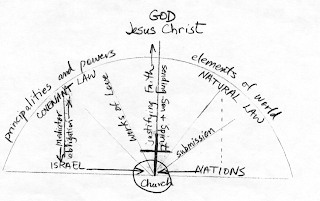 GOD
Jesus Christ
principalities and powers
COVENANT LAW
elements of world
NATURAL LAW
Mediator
obligation
works of love
Justifying Faith
sending Son + Spirit
submission
ISRAEL
Church
NATIONS